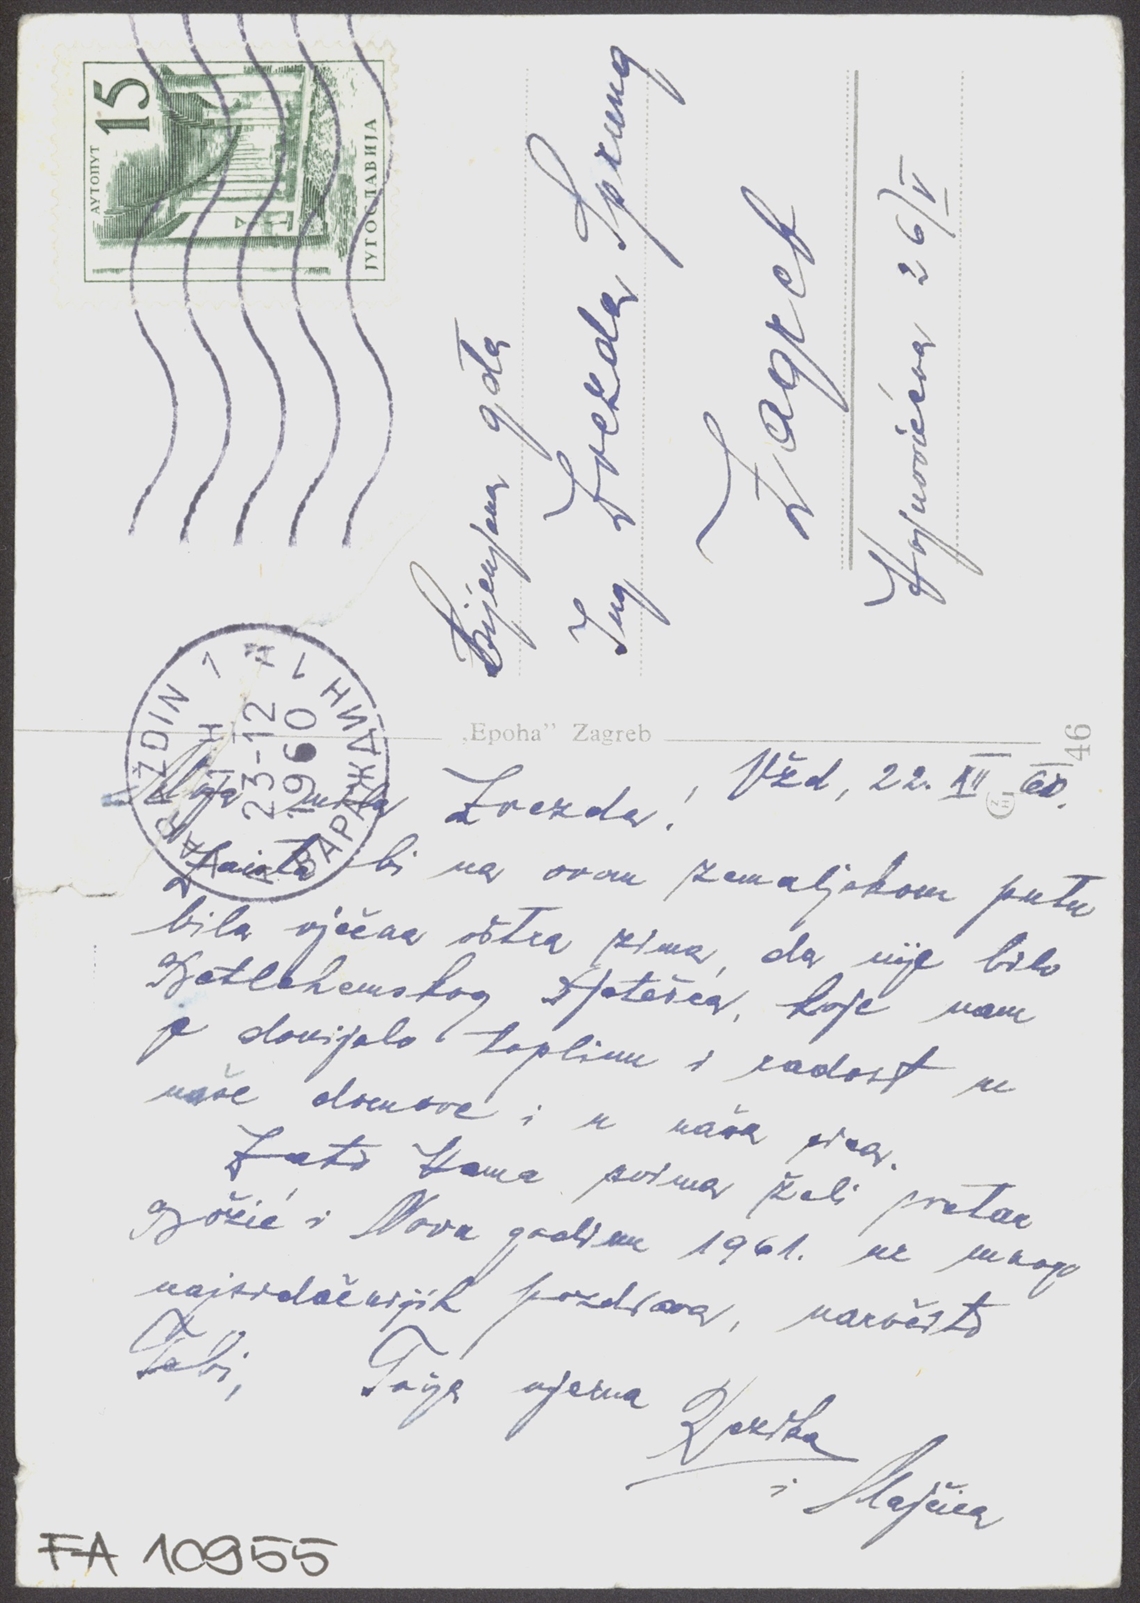 15
АУТОПУТ
ЈУГОСЛАВИЈА
VARAŽDIN 1
1 H
23-12
1960
ВАРАЖДИН 1
Cijenjena gđa
Ing Zvezda Sprung
Zagreb
Hojnovićeva 26/V
„Epoha” Zagreb
46
Vžd, 22. XII 60.
Moja mila Zvezda!
Zaista bi na ovom zemaljskom putu
bila vječna oštra zima, da nije bilo
Betlehemskog Djetešca, koje nam
je donijelo toplinu i radost u
naše domove i u naša srca.
Zato Vama svima želi sretan
Božić i Novu godinu 1961. uz mnogo
najsrdačnijih pozdrava, naročito
Tebi, Tvoja vjerna
i Majčica
FA 10955